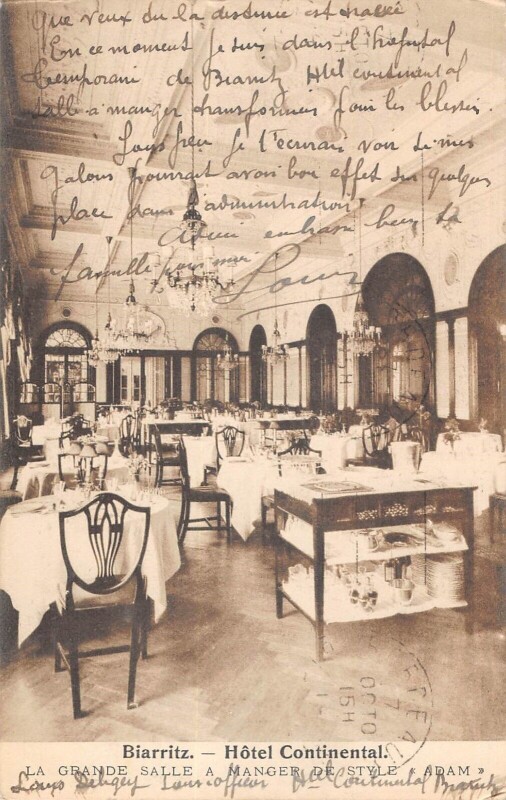 que veux du la destinée est tracée
En ce moment je suis dans l'hopital
temporaire de Biarritz Htel continental
salle a manger transformées pour les blessés.
Sous peu je t'écrirai voir si mes
galons pourrait avoir bon effet sur quelques
place dans l'administration
Adieu embrasse bien ta
famille pour moi Louis
Biarritz. — Hôtel Continental.
LA GRANDE SALLE A MANGER DE STYLE « ADAM »
Louis sous officier Htel Continental Biarritz
15H
OCTO